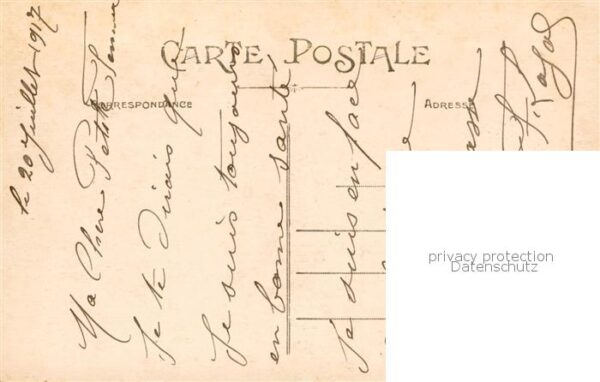 CARTE POSTALE
CORRESPONDANCE
ADRESSE
le 20 Juillet 1917
Ma Chere Petite Femme
Je te dirais que
Je suis toujours
en bonne santé
Je suis en face
privacy protection
Datenschutz